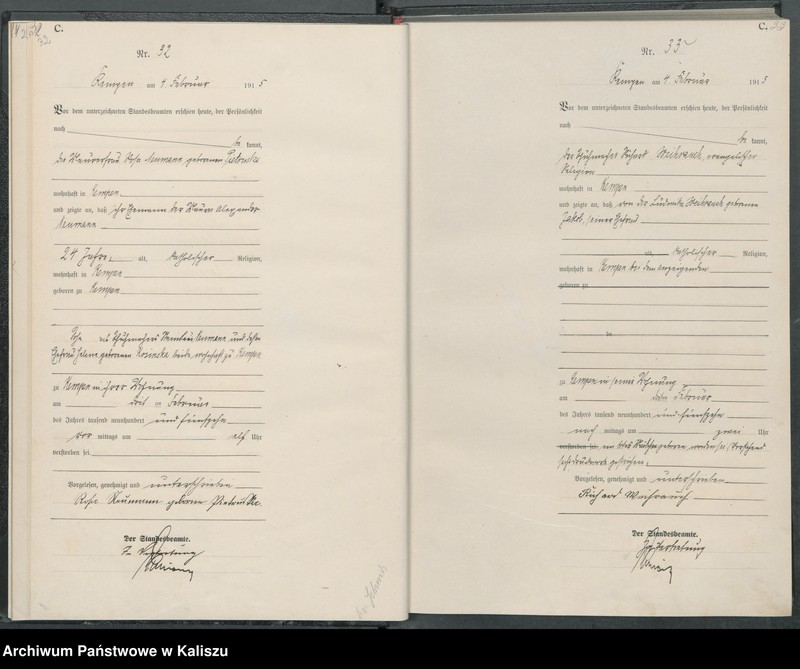 C.
Nr. 32
Kempen am 4. Februar 1915
Vor dem unterzeichneten Standesbeamten erschien heute, der Persönlichkeit
nach
be kannt,
die Maurerfrau Rosa Neumann geborenen
wohnhaft in Kempen
und zeigte an, daß ihr Ehemann der Maurer Alexander
Neumann
24 Jahre, alt, katholischer Religion,
wohnhaft in Kempen
geboren zu Kempen
Sohn des Schuhmachers Neumann und dessen
Ehefrau Helene geborenen beide wohnhaft zu Kempen
zu Kempen in ihrer Wohnung
am drei ten Februar
des Jahres tausend neunhundert und fünfzehn
vor mittags um elf Uhr
verstorben sei.
Vorgelesen, genehmigt und unterschrieben
Rosa Neumann geborene
Der Standesbeamte.
In Vertretung
C. 33
Nr. 33
Kempen am 4. Februar 1915
Vor dem unterzeichneten Standesbeamten erschien heute, der Persönlichkeit
nach
be kannt,
der Schuhmacher Richard Weihrauch, evangelischer
Religion
wohnhaft in Kempen
und zeigte an, daß von der Ludowika Weihrauch geborenen
Jakob, seiner Ehefrau
alt, katholischer Religion,
wohnhaft in Kempen bei dem Anzeigenden
geboren zu
zu Kempen in seiner Wohnung
am Februar
des Jahres tausend neunhundert und fünfzehn
nach mittags um zwei Uhr
verstorben sei. ein totes Mädchen geboren worden sei. Vorstehend
gestrichen.
Vorgelesen, genehmigt und unterschrieben
Richard Weihrauch
Der Standesbeamte.
In Vertretung
Archiwum Państwowe w Kaliszu